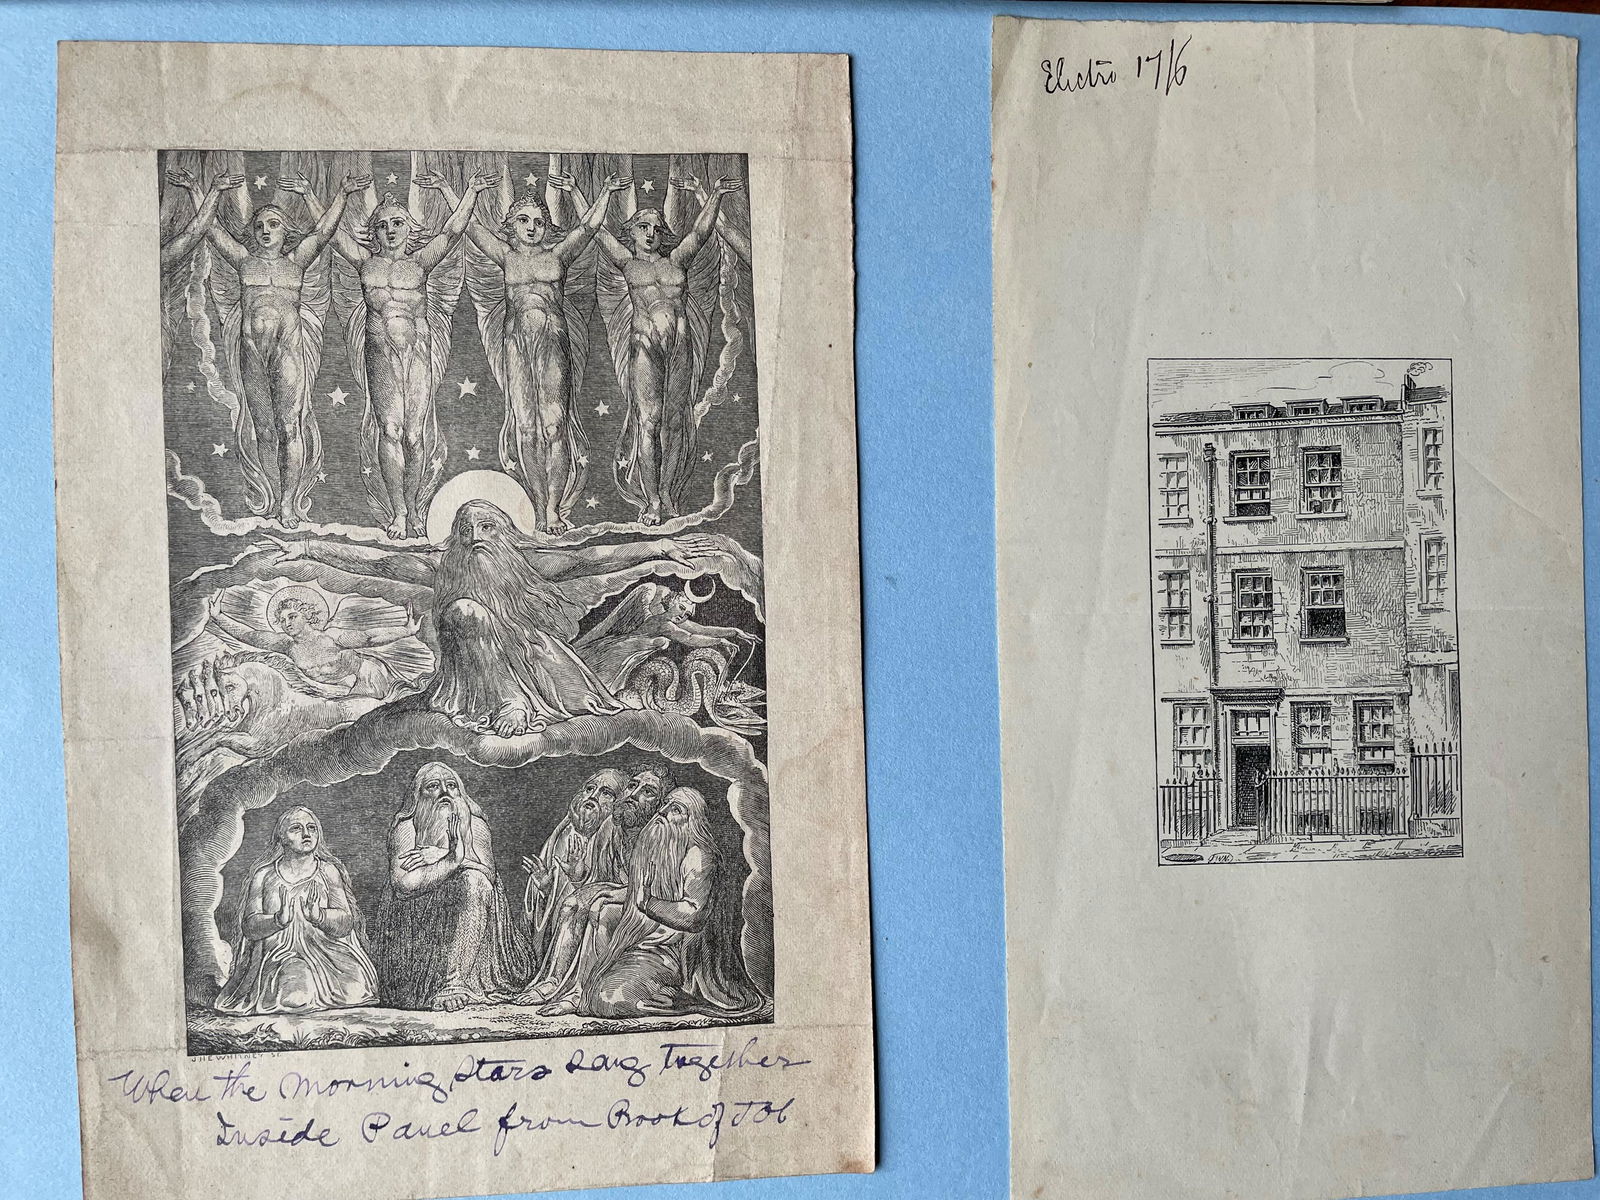 J.H.E. WHITNEY SC
When the Morning Stars sang together
Inside Panel from Book of Job
Electro 17/6